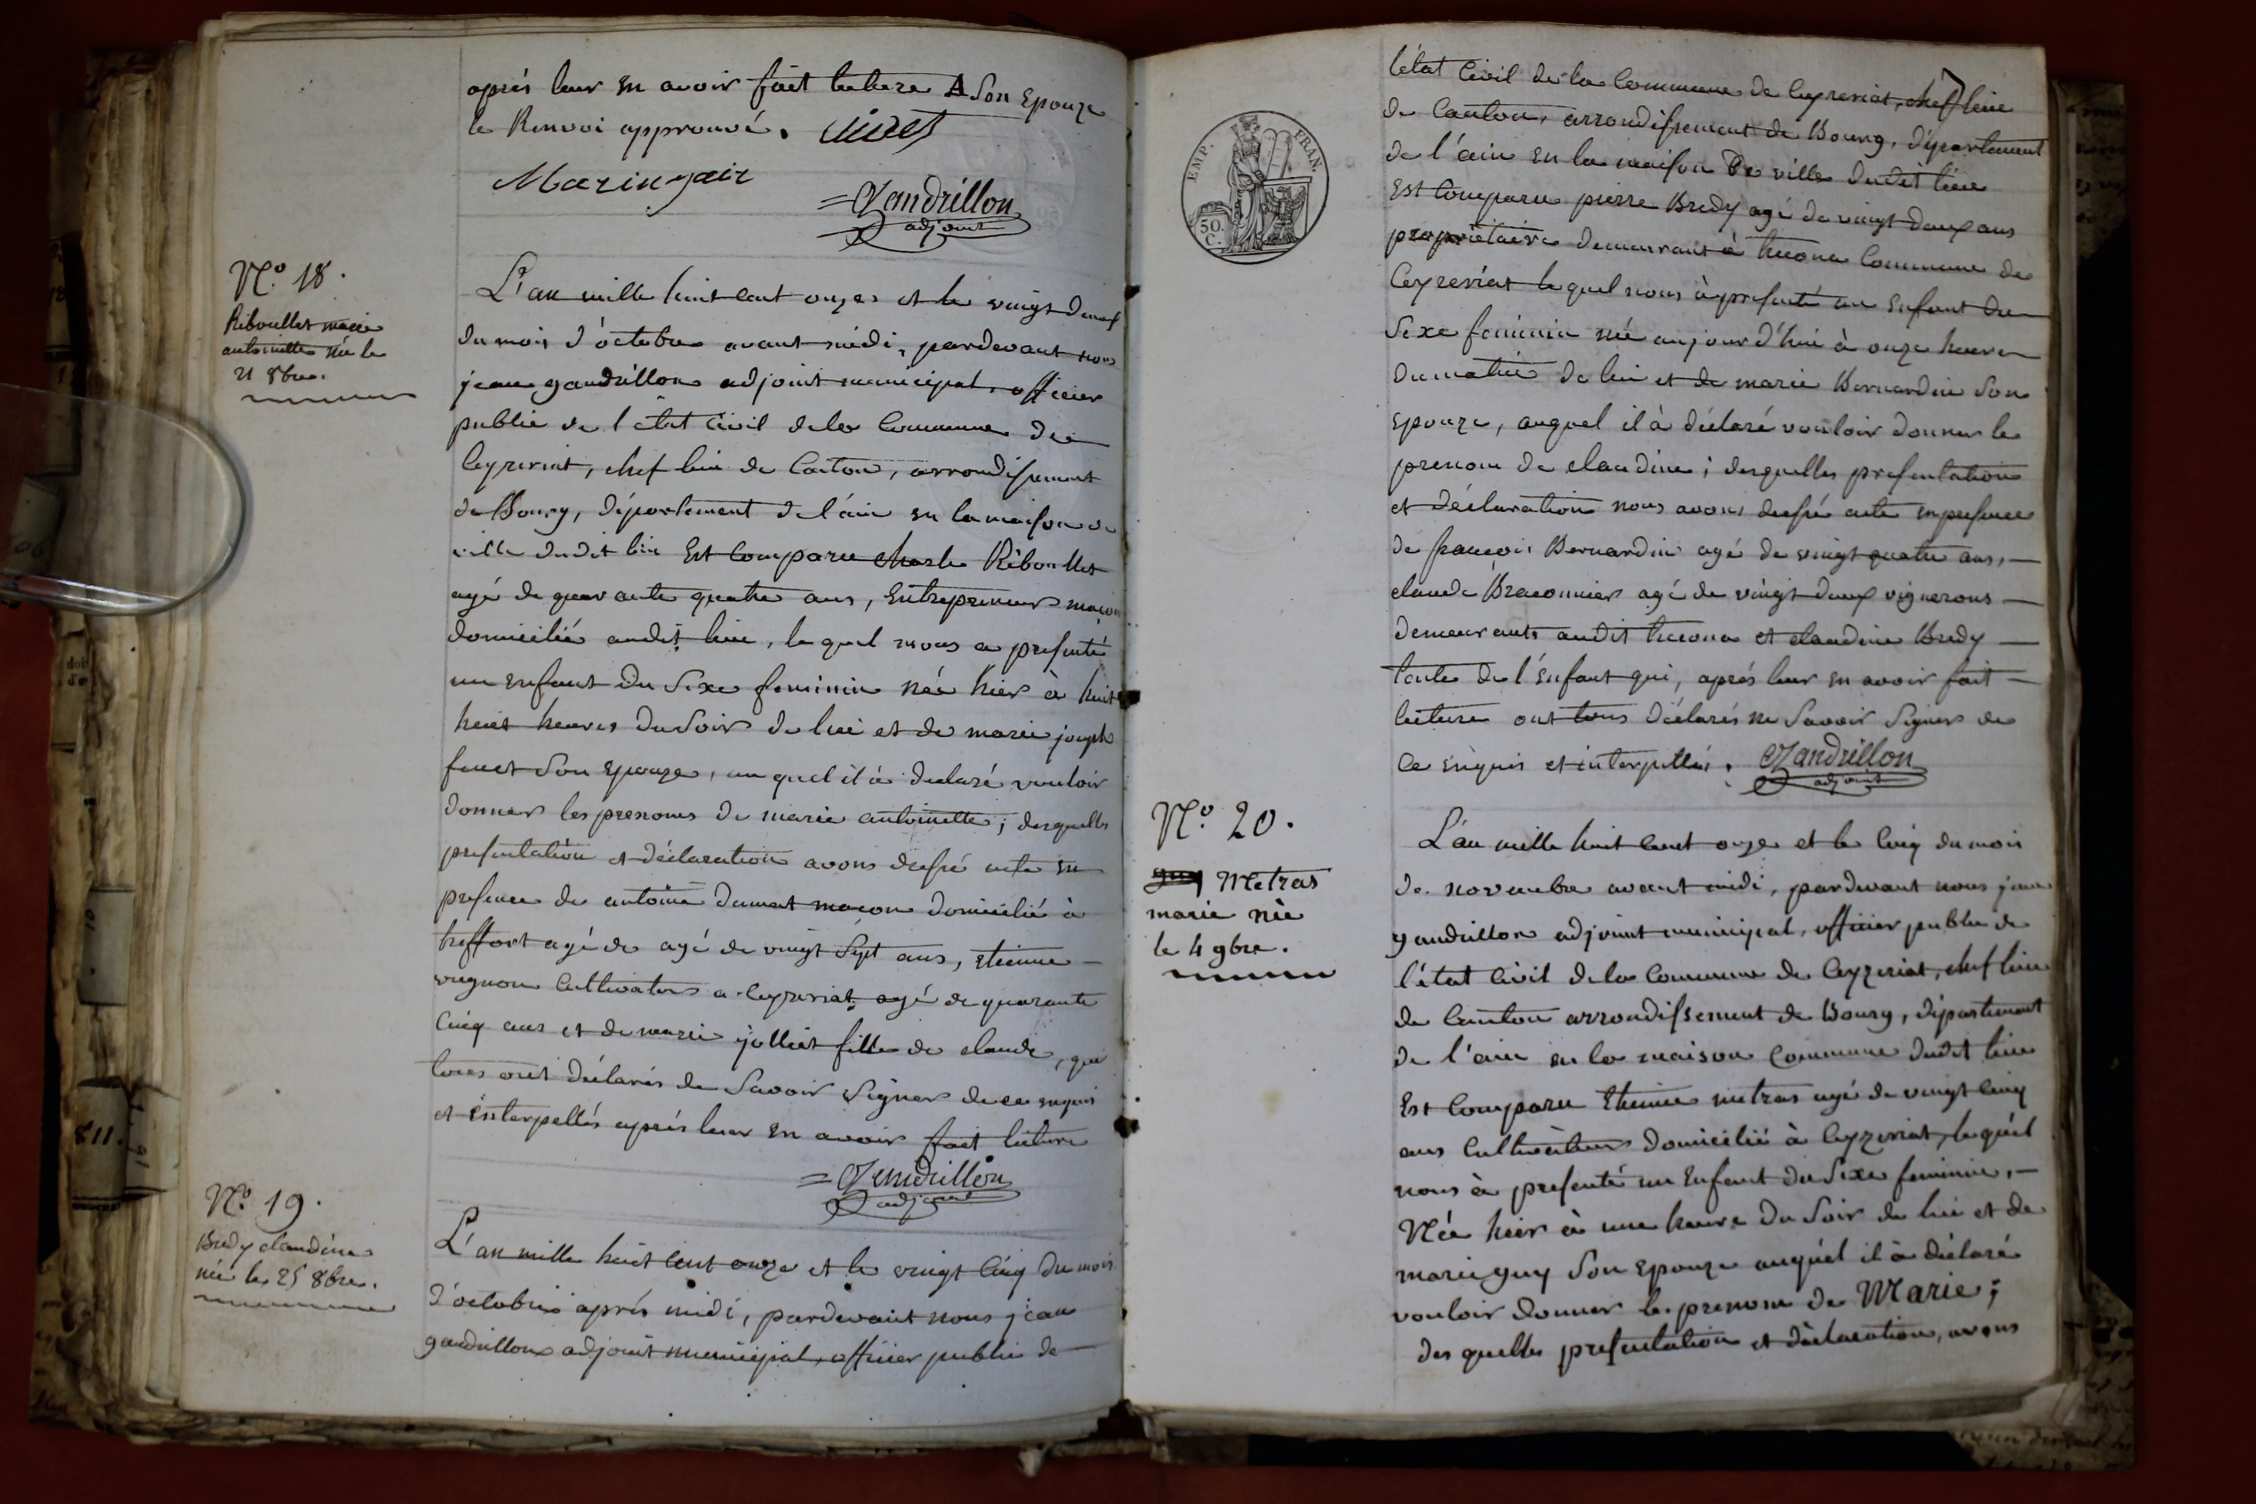 après leur en avoir fait lecture A Son Epouze
le Renvoi approuvé.
=Gandrillon
adjoint
N.º 18.
Riboullet marie
antoinette née le
21 8bre.
L'an mille huit cent onze et le vingt deux
du mois d'octobre avant midi, pardevant nous
jean gandrillon adjoint municipal, officier
public de l'état civil de la Commune de
Ceyzeriat, chef lieu de Canton, arrondissement
de Bourg, département de l'ain en la maison de
ville dudit lieu Est Comparu charle Riboullet
agé de quarante quatre ans, Entrepreneur maçon
domicilié audit lieu, le quel nous a presenté
un enfant du Sexe feminin née hier à huit
huit heures du Soir de lui et de marie joseph
son Epouze, au quel il à declaré vouloir
donner les prenoms de marie antoinette; desquelles
presentation et déclaration avons dressé acte en
presence de antoine dumat maçon domicilié à
treffort agé de agé de vingt Sept ans, etienne
vugnon Cultivateur a Ceyzeriat, agé de quarante
Cinq ans et de marie jolliet fille de claude, qui
tous ont déclarés de Savoir Signer de ce enquis
et interpellés après leur en avoir fait lecture
=Gandrillon
adjoint
N.º 19.
Bredy claudine
née le 25 8bre.
L'an mille huit cent onze et le vingt Cinq du mois
d'octobre après midi, pardevant nous jean
gandrillon adjoint municipal, officier public de
EMP. FRAN.
50.
C.
l'état Civil de la Commune de Ceyzeriat, chef lieu
de Canton, arrondissement de Bourg, département
de l'ain en la maison De ville dudit lieu
Est Comparu pierre Bredy agé de vingt deux ans
proprietaire demeurant à Commune de
Ceyzeriat le quel nous à presenté un enfant du
Sexe feminin née aujourd'hui à onze heures
du matin de lui et de marie Bernardin Son
Epouze, auquel il à déclaré vouloir donner le
prenom de claudine; desquelles presentation
et déclaration nous avons dressé acte en presence
de françois Bernardin agé de vingt quatre ans,
claude Braconnier agé de vingt deux vignerons
demeurants audit et claudine Bredy
tante de l'Enfant qui, après leur en avoir fait
lecture ont tous déclarés ne Savoir Signer de
Ce enquis et interpellés. Gandrillon
adjoint
N.º 20.
guy Metras
marie née
le 4 9bre.
L'an mille huit cent onze et le Cinq du mois
de novembre avant midi, pardevant nous jean
gandrillon adjoint municipal, officier public de
l'état Civil de la Commune de Ceyzeriat, chef lieu
de Canton arrondissement de Bourg, département
de l'ain en la maison Commune dudit lieu
Est Comparu Etienne metras agé de vingt Cinq
ans Cultivateur domicilié à Ceyzeriat, le quel
nous à presenté un Enfant du Sexe feminin,
Née hier à une heure du Soir de lui et de
marie guy Son epouze auquel il à déclaré
vouloir donner le prenom de Marie;
des quelles presentation et déclaration, avons